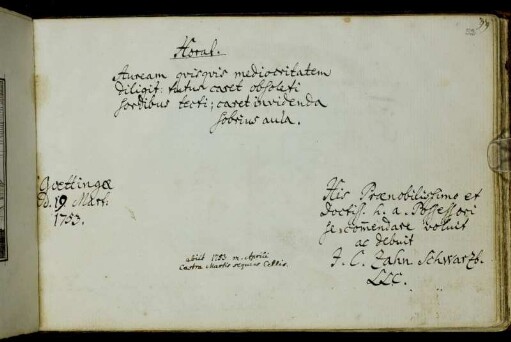 Horat.
Auream quisquis mediocritatem
diligit: tutus caret obsoleti
sordibus tecti; caret invidenda
sobrius aula.
Goettingae
d. 19 Mart:
1753.
His Praenobilissimo et
Doctiss. h. a. Possessori
se, com̄endare voluit
ac debuit
J. C. Zahn Schwarzb.
LLC.
abiit 1753 m. Aprili
Castra Martis sequens